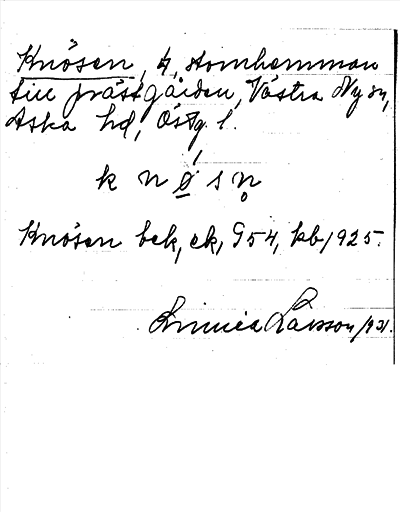 Knösen, t, stomhemman
till prästgården, Västra Ny sn,
Aska hd, Östg. l.
k n ø s n̥
Knösen bek, ek, G 54, kb 1925.
Linnéa Larsson 1931.